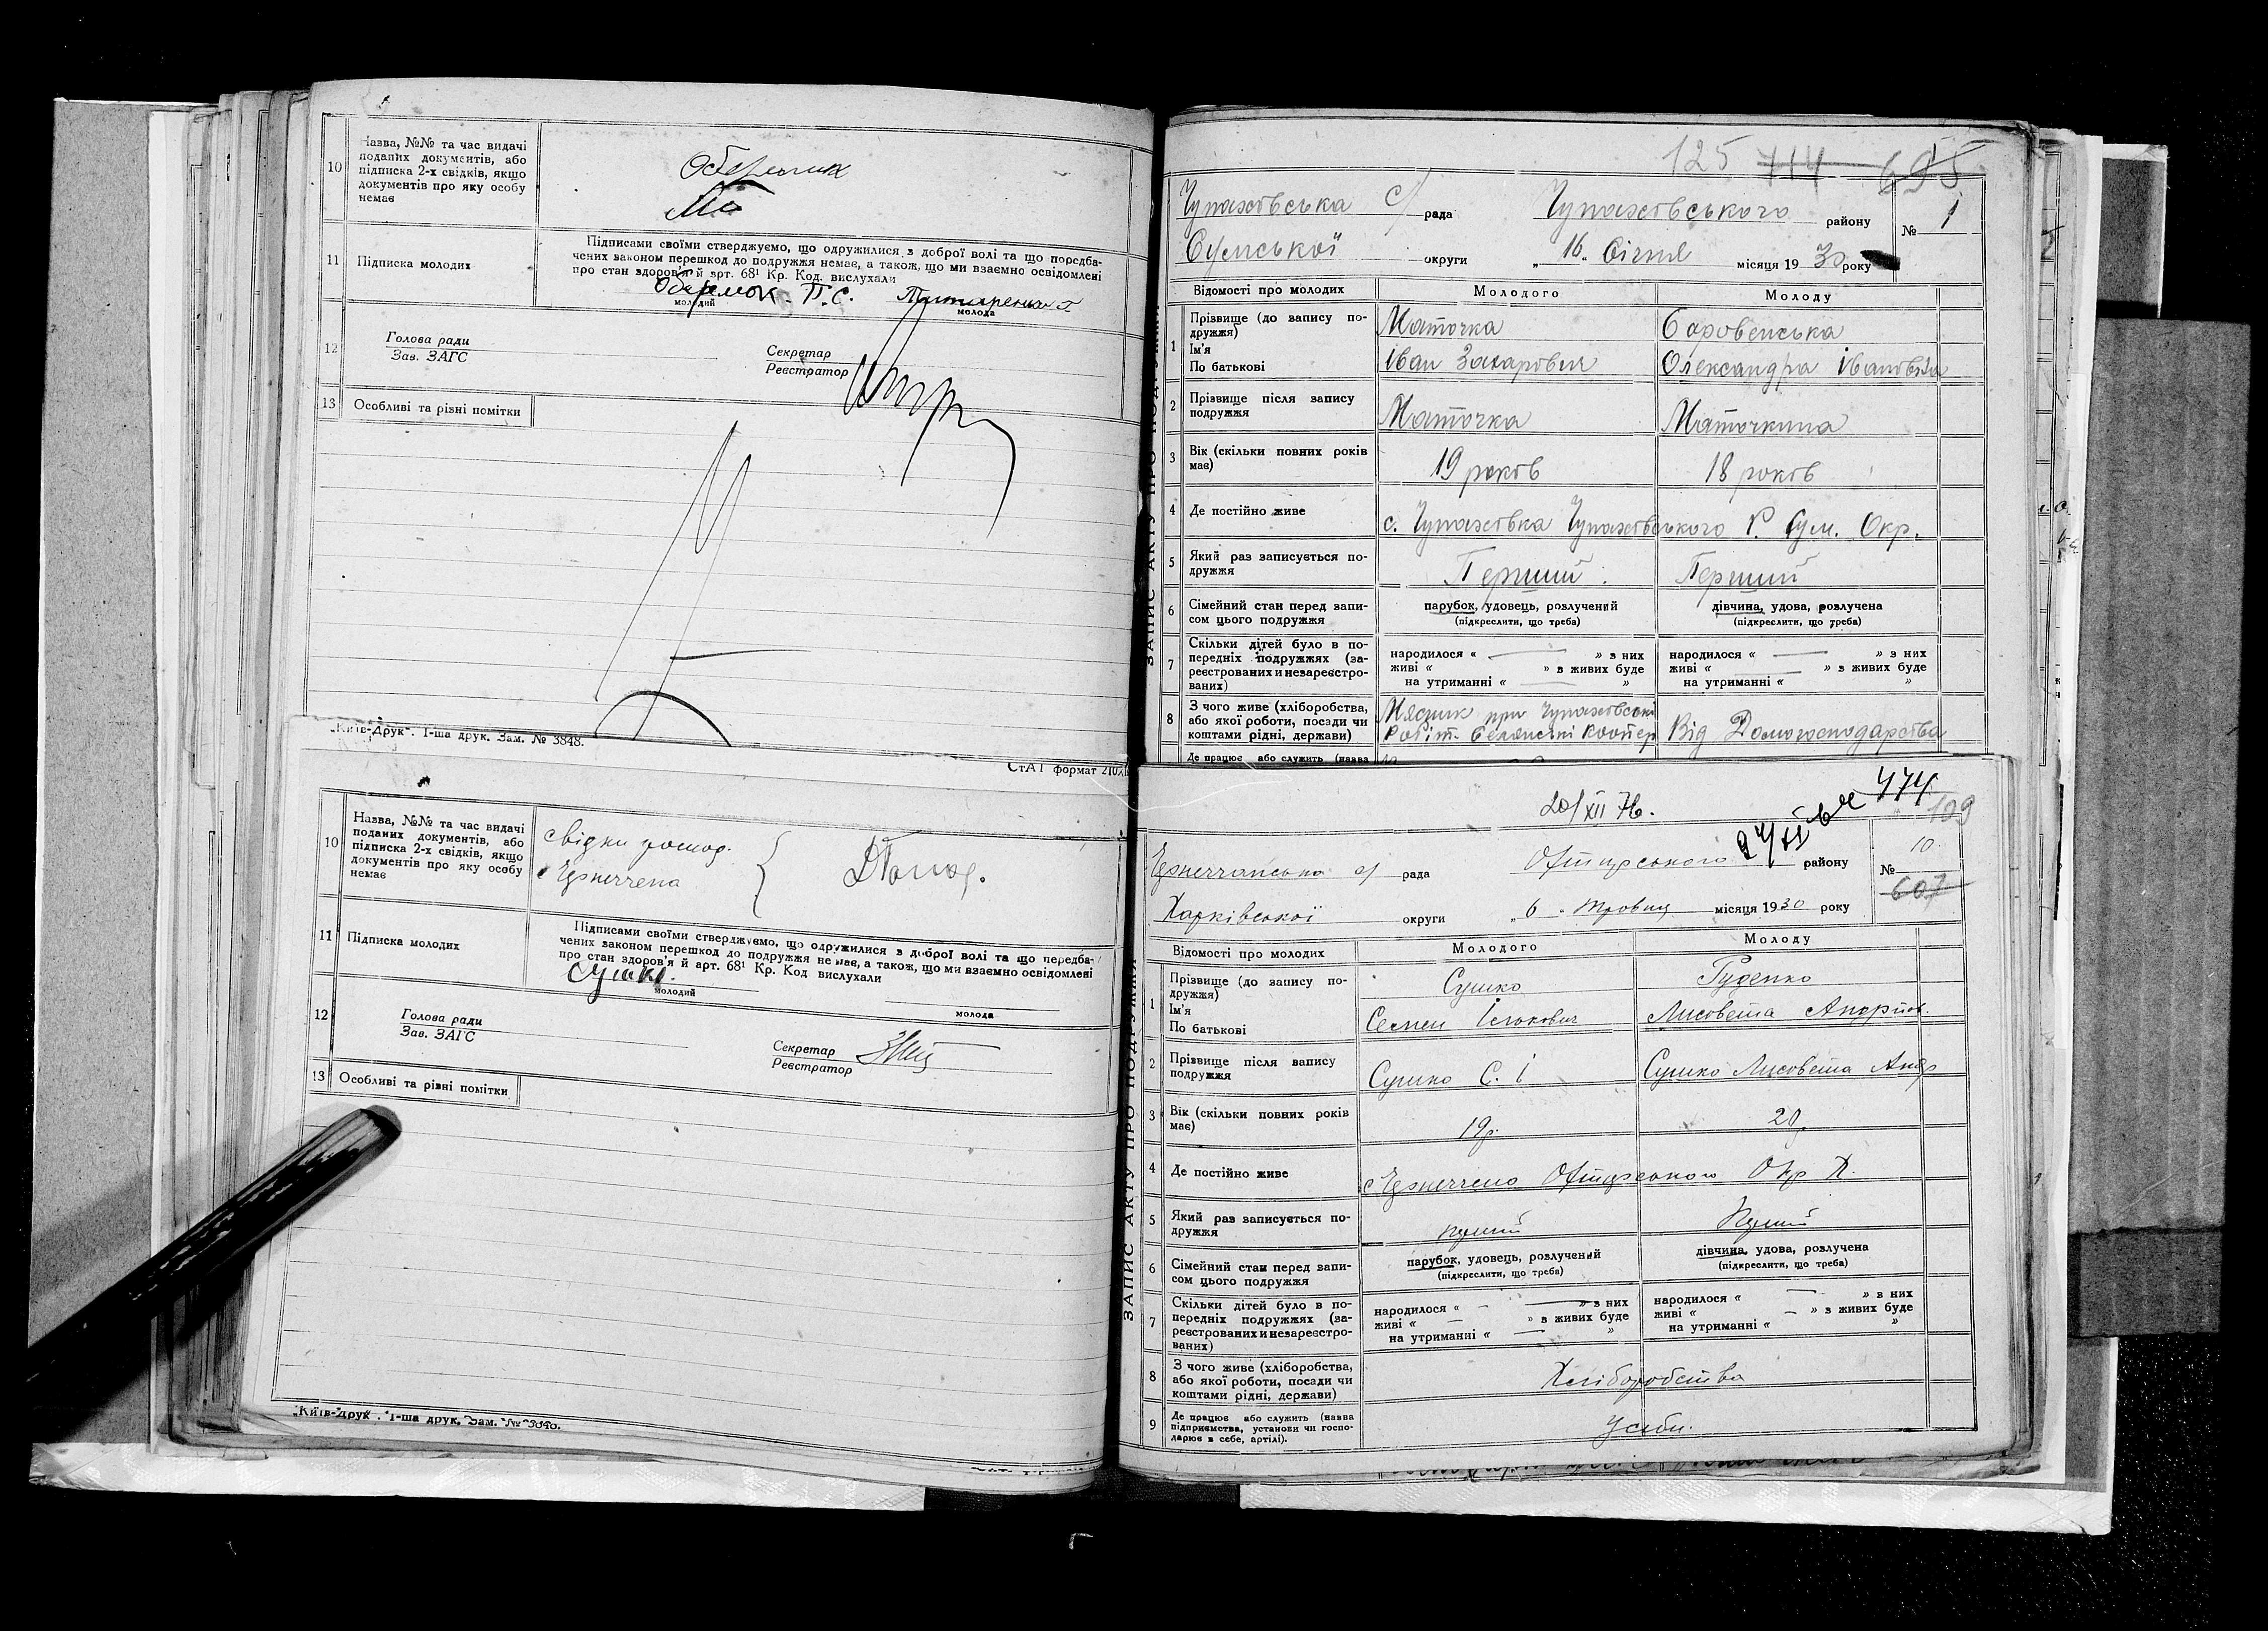 10
Назва, №№ та час видачі
поданих документів, або
підписка 2-х свідків, якщо
документів про яку особу
немає
11 Підписка молодих
Підписами своїми стверджуємо, що одружилися з доброї волі та що передба-
чених законом перешкод до подружжя немає, а також, що ми взаємно освідомлені
про стан здоров'я й арт. 68¹ Кр. Код. вислухали
П. С.
молодий
молода
12
Голова ради
Зав. ЗАГС
Секретар
Реєстратор
13 Особливі та різні помітки
„Київ-Друк“. 1-ша друк. Зам. № 3848.
СтАТ формат 210
10
Назва, №№ та час видачі
поданих документів, або
підписка 2-х свідків, якщо
документів про яку особу
немає
свідки
11 Підписка молодих
Підписами своїми стверджуємо, що одружилися з доброї волі та що передба-
чених законом перешкод до подружжя немає, а також, що ми взаємно освідомлені
про стан здоров'я й арт. 68¹ Кр. Код вислухали
молодий
молода
12
Голова ради
Зав. ЗАГС
Секретар
Реєстратор
13 Особливі та різні помітки
„Київ-Друк“. 1-ша друк. Зам. № 3848.
125 714 695
ЗАПИС АКТУ ПРО ПОДРУЖЖЯ
Чупахівська с/ рада Чупахівського району № 1
Сумської округи „16“ Січня місяця 1930 року
Відомості про молодих Молодого Молоду
1
Прізвище (до запису по-
дружжя)
Ім'я
По батькові
Маточка
Іван Захарович
Боровенська
Олександра Івановна
2
Прізвище після запису
подружжя
Маточка Маточкина
3
Вік (скільки повних років
має)
19 років 18 років
4 Де постійно живе
с. Чупахівка Чупахівського Р. Сум. Окр.
5
Який раз записується по-
дружжя
Перший Перший
6
Сімейний стан перед запи-
сом цього подружжя
парубок, удовець, розлучений
(підкреслити, що треба)
дівчина, удова, розлучена
(підкреслити, що треба)
7
Скільки дітей було в по-
передніх подружжях (за-
реєстрованих и незареєстро-
ваних)
народилося « — » з них
живі « » з живих буде
на утриманні « — »
народилося « — » з них
живі « — » з живих буде
на утриманні « »
8
З чого живе (хліборобства,
або якої роботи, посади чи
коштами рідні, держави)
Мясник при Чупахівські
Робіт. Селянські Коопер
Від Домогосподарства
Де працює або служить (назва
20/XII 76.
474
109
ЗАПИС АКТУ ПРО ПОДРУЖЖЯ
с/ рада Охтирського району № 10
607
Харківської округи „6“ Травня місяця 1930 року
Відомості про молодих Молодого Молоду
1
Прізвище (до запису по-
дружжя)
Ім'я
По батькові
Сушко
Семен Ількович
Руденко
Лисовета Андріїв.
2
Прізвище після запису
подружжя
Сушко С. І
Сушко Лисовета Андр
3
Вік (скільки повних років
має)
19р. 20
4 Де постійно живе
Охтирського Окр Х.
5
Який раз записується по-
дружжя
6
Сімейний стан перед запи-
сом цього подружжя
парубок, удовець, розлучений
(підкреслити, що треба)
дівчина, удова, розлучена
(підкреслити, що треба)
7
Скільки дітей було в по-
передніх подружжях (за-
реєстрованих и незареєстро-
ваних)
народилося « — » з них
живі « — » з живих буде
на утриманні « — »
народилося « — » з них
живі « — » з живих буде
на утриманні « »
8
З чого живе (хліборобства,
або якої роботи, посади чи
коштами рідні, держави)
Хліборобства
9
Де працює або служить (назва
підприємства, установи чи госпо-
дарює в себе, артілі).
У себи.